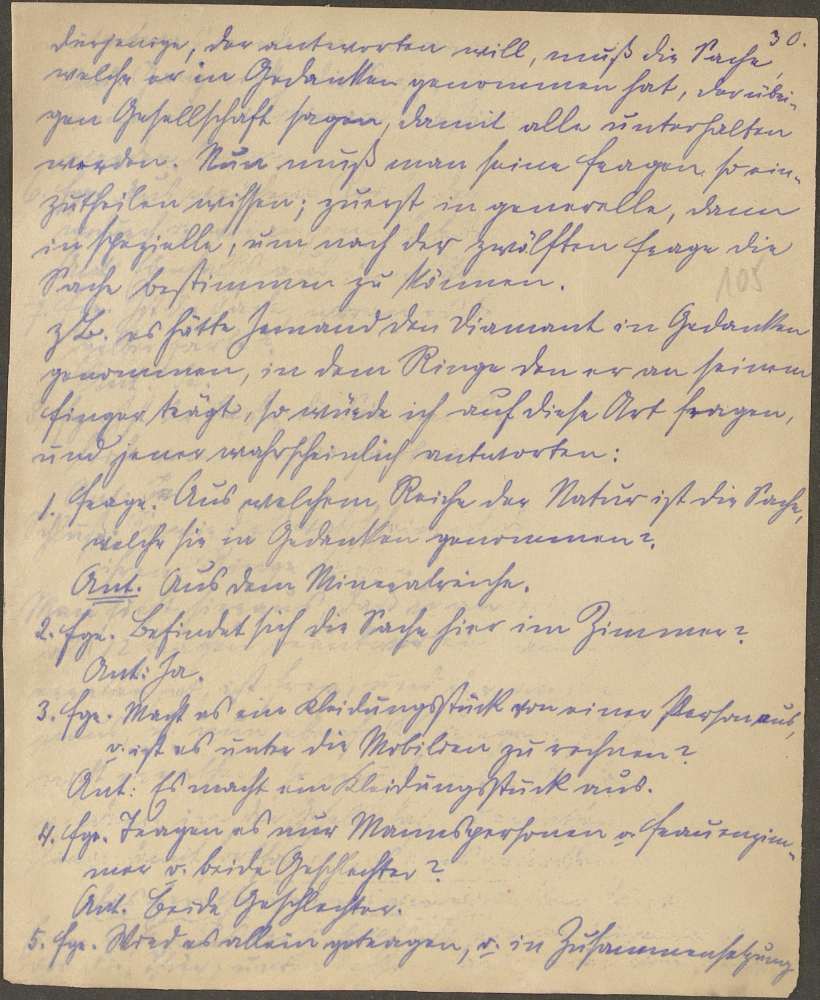 30.
derjenige, der antworten will, muß die Sache,
welche er in Gedanken genommen hat, der übri-
gen Gesellschaft sagen, damit alle unterhalten
werden. Nun muß man seine Fragen so ein-
zutheilen wissen; zuerst in generelle, dann
in spezielle, um nach der zwölften Frage die
Sache bestimmen zu können.
105
z.B. es hätte Jemand den Diamant in Gedanken
genommen, in dem Ringe den er an seinem
Finger trägt, so würde ich auf diese Art fragen,
und jener wahrscheinlich antworten:
1. Frage. Aus welchem Reiche der Natur ist die Sache,
welche sie in Gedanken genommen?
Ant. Aus dem Mineralreiche.
2. Fge. Befindet sich die Sache hier im Zimmer?
Ant: Ja.
3. Fge. Macht es ein Kleidungsstück von einer Person aus,
o. ist es unter die Mobilien zu rechnen?
Ant: Es macht ein Kleidungsstück aus.
4. Fge. Tragen es nur Mannspersonen o. Frauenzim-
mer o. beide Geschlechter?
Ant. Beide Geschlechter.
5. Fge. Wird es allein getragen, o. in Zusammensetzung